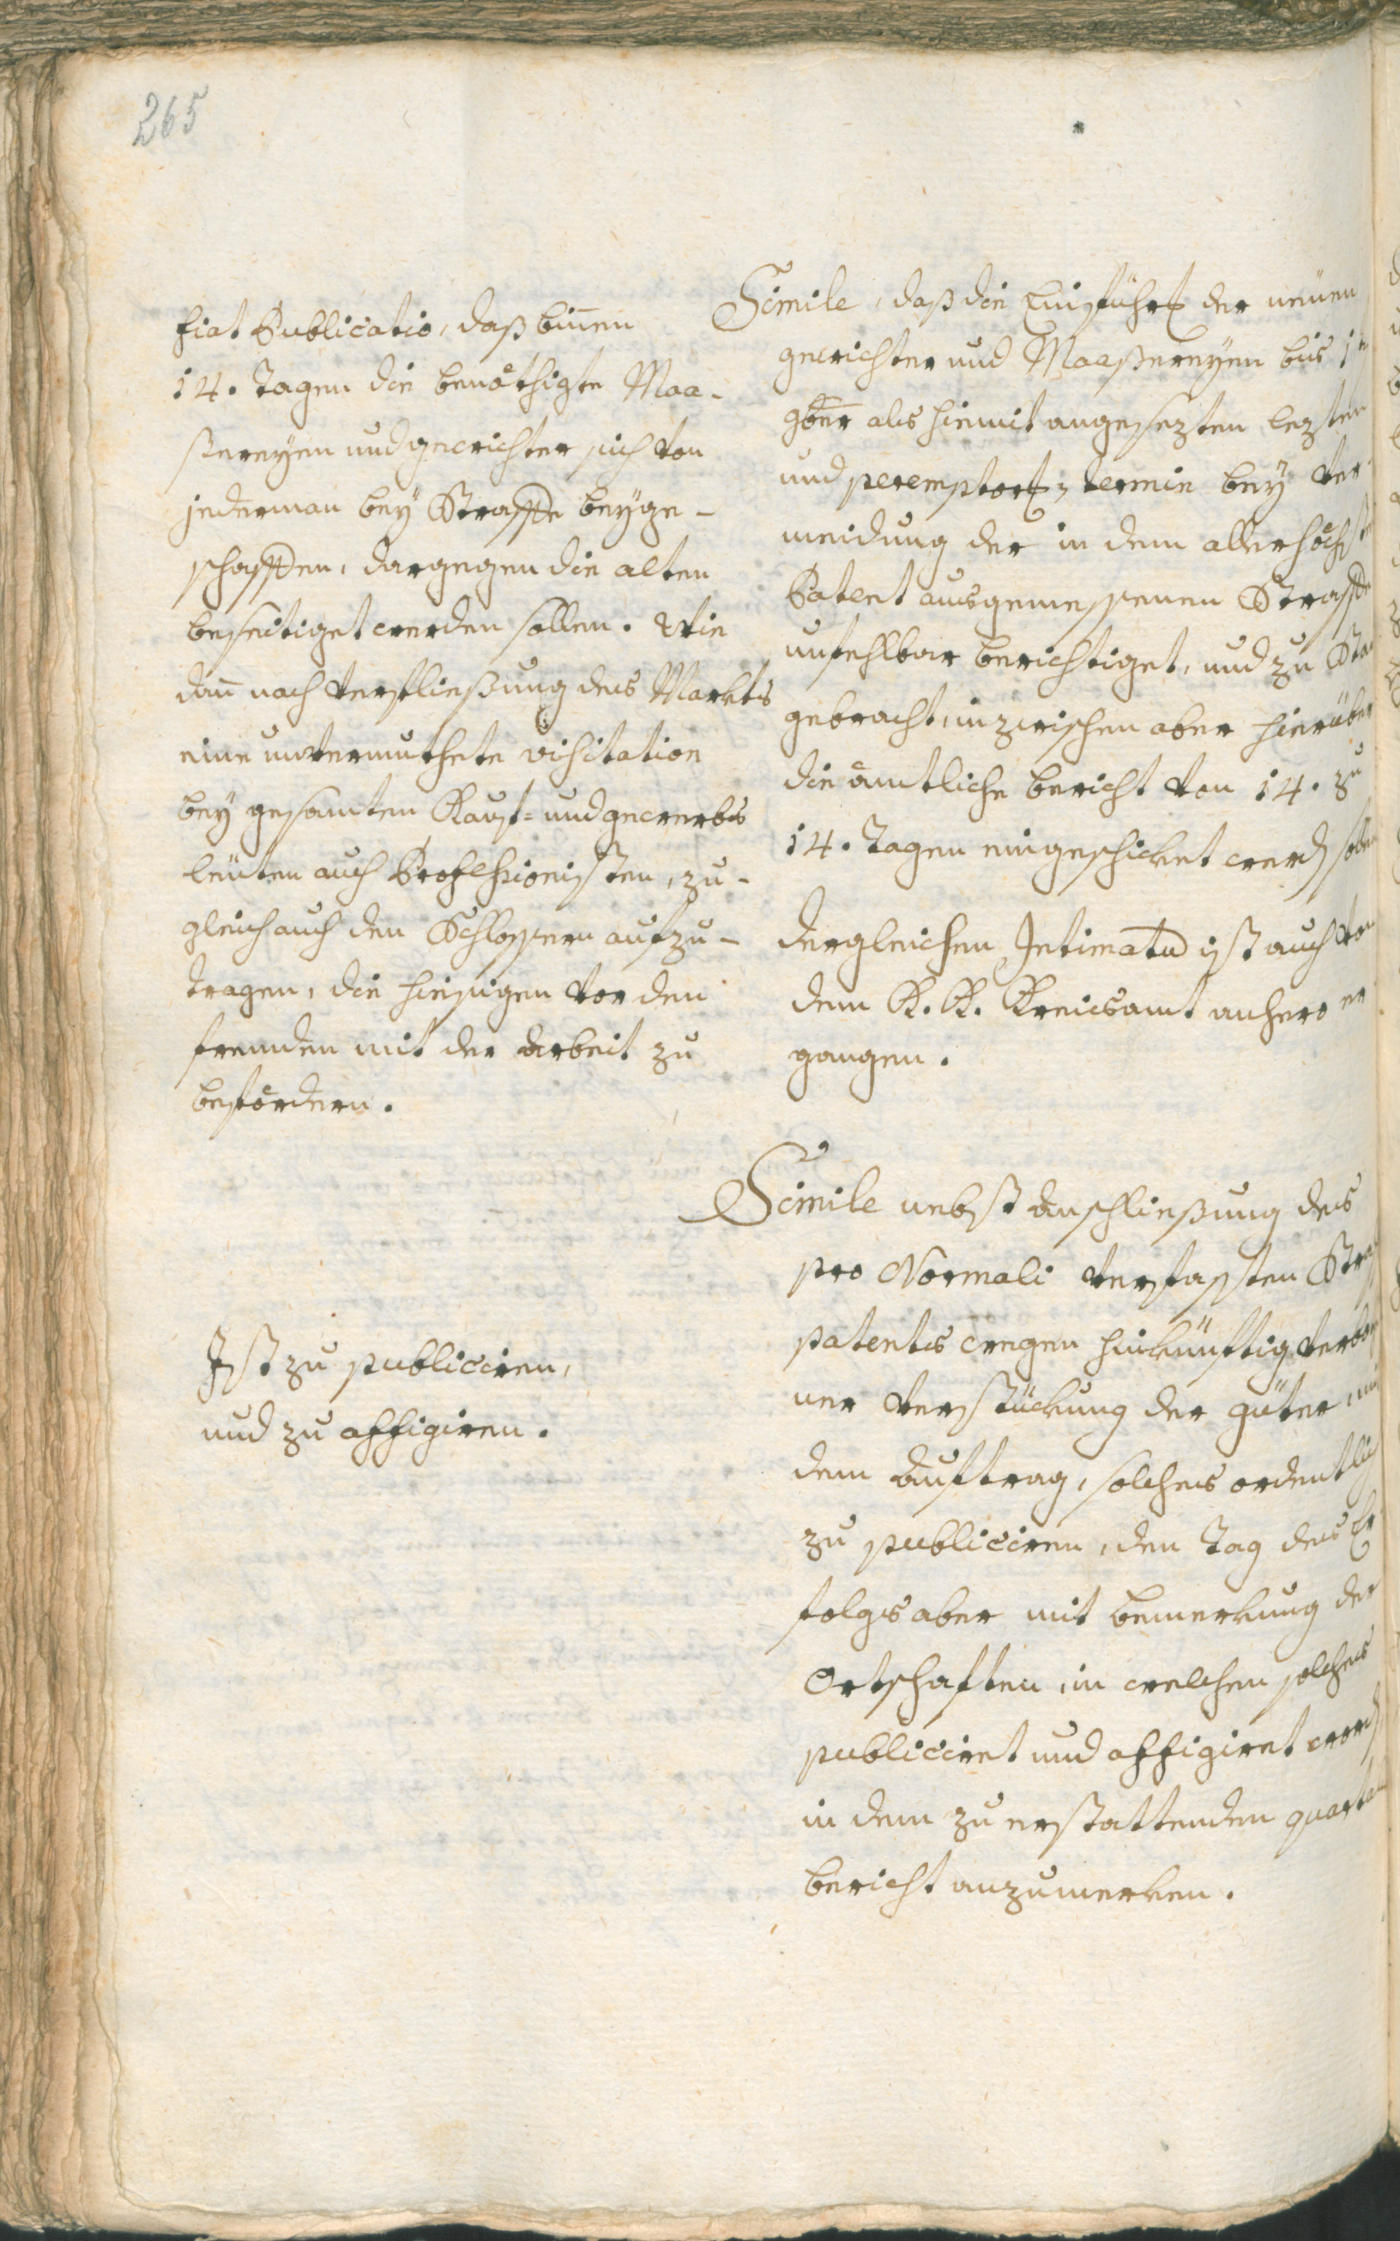 265
fiat Publicatio, daß binnen
14. Tagen die benöthigte Maa-
ßereyen und gewichter sich von
jederman bey Straffe beyge-
schaffen, dargegen die alten
beseitiget werden sollen. Wie
dan nach verfließung des Markts
eine unvermuthete visitation
bey gesamten Kauf- und gewerbs
leüten auch Professionisten, zu-
gleich auch den Schlossern aufzu-
tragen, die hiesigen vor den
fremden mit der arbeit zu
befördern.
Ist zu publiciren,
und zu affigiren.
Simile, daß die Einführung der neuen
gewichter und Maaßereyen bis 1ten
9ber als hiemit angesezten lezten
und peremptori: termin bey ver-
meidung der in dem allerhöchst
Patent ausgemessenen Straffe
unfehlbar berichtiget, und zu
gebracht, inzwischen aber hierüber
die ämtliche bericht von 14. zu
14. Tagen eingeschicket werden sollen
dergleichen Intimatum ist auch von
dem K. K. Kreisamt anhero er
gangen.
Simile nebst anschließung des
pro Normali verfassten
patents wegen hinkünftig
ner verstückung der güter mit
dem auftrag, solches ordentlich
zu publiciren, den Tag des Er
folgs aber mit bemerkung der
Ortschaften, in welchen solches
publiciret und affigiret word
in dem zu erstattenden quartal
bericht anzumerken.